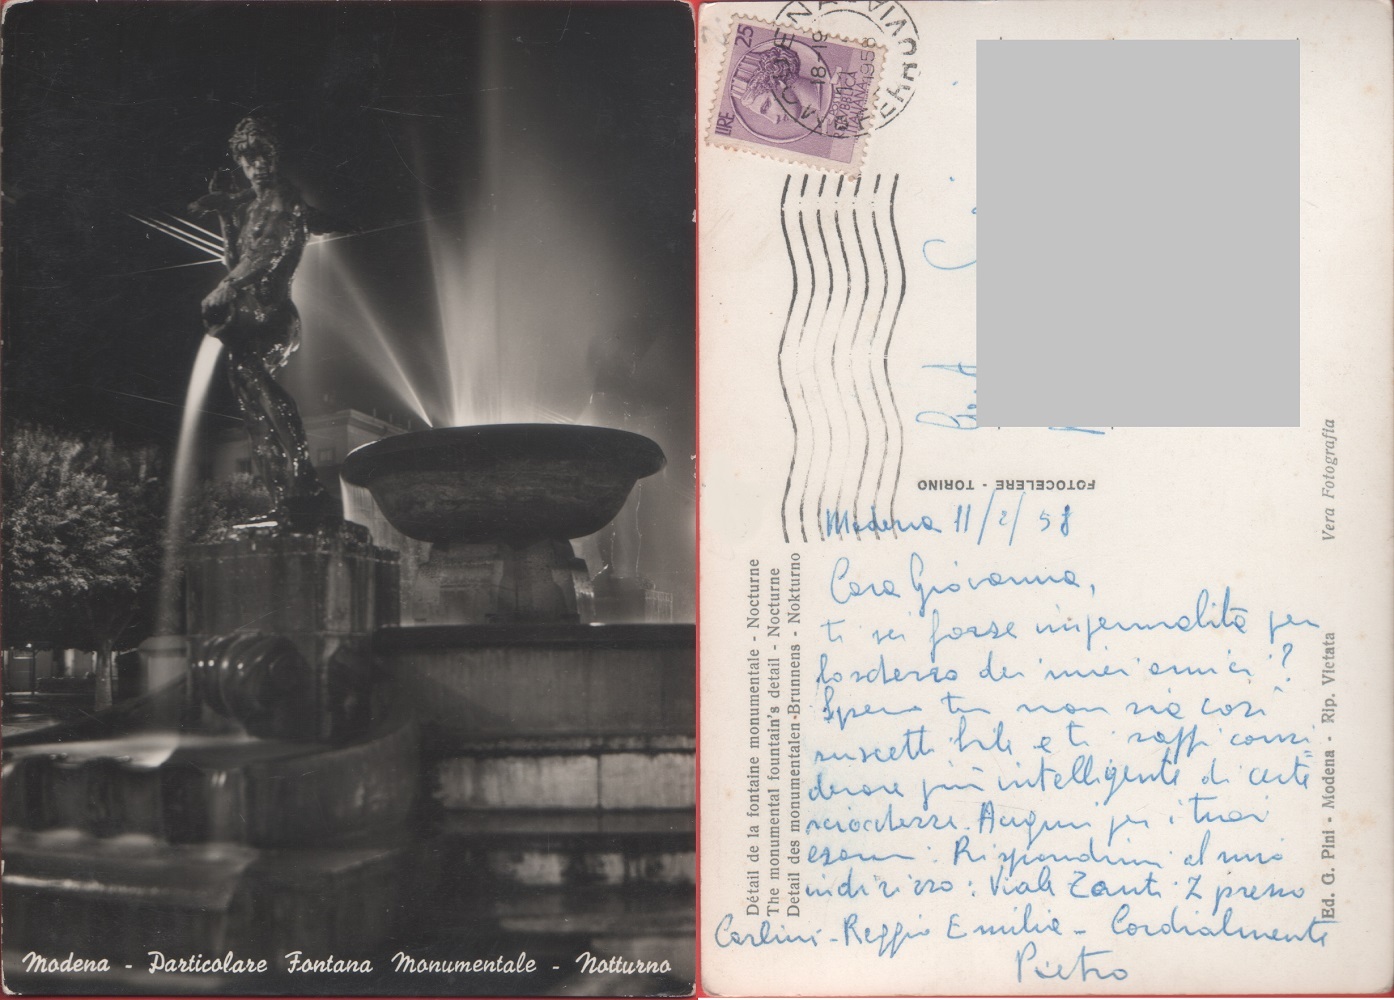 Modena - Particolare Fontana Monumentale - Notturno
LIRE 25
REPUBBLICA
ITALIANA
FERROVIA
18-19
1958
FOTOCELERE - TORINO
Modena 11/2/58
Cara Giovanna,
ti sei forse impermalita per
lo scherzo dei miei amici?
Spero tu non sia così
suscettibile e ti saffi consi=
derare più intelligente di certe
sciocchezze. Auguri per i tuoi
esami. Rispondimi al mio
indirizzo: Viale Zanti 2 presso
Carlini - Reggio Emilia - Cordialmente
Pietro
Détail de la fontaine monumentale - Nocturne
The monumental fountain's detail - Nocturne
Detail des monumentalen-Brunnens - Nokturno
Ed. G. Pini - Modena - Rip. Vietata
Vera Fotografia